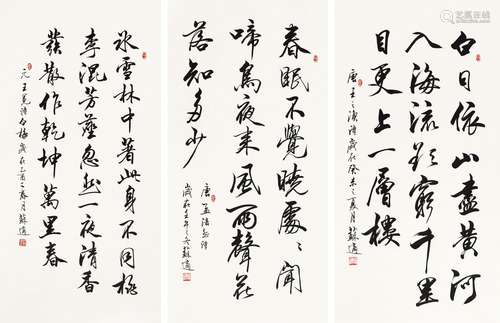 白日依山盡黃河
入海流欲窮千里
目更上一層樓
唐王之渙詩歲在癸未之夏月蘇適
春眠不覺曉處〻聞
啼鳥夜來風雨聲花
落知多少
唐孟浩然詩
歲在壬午之冬蘇適
冰雪林中著此身不同桃
李混芳塵忽然一夜清香
發散作乾坤萬里春
元王冕詩白梅歲在乙酉之春月蘇適
艺狐在线